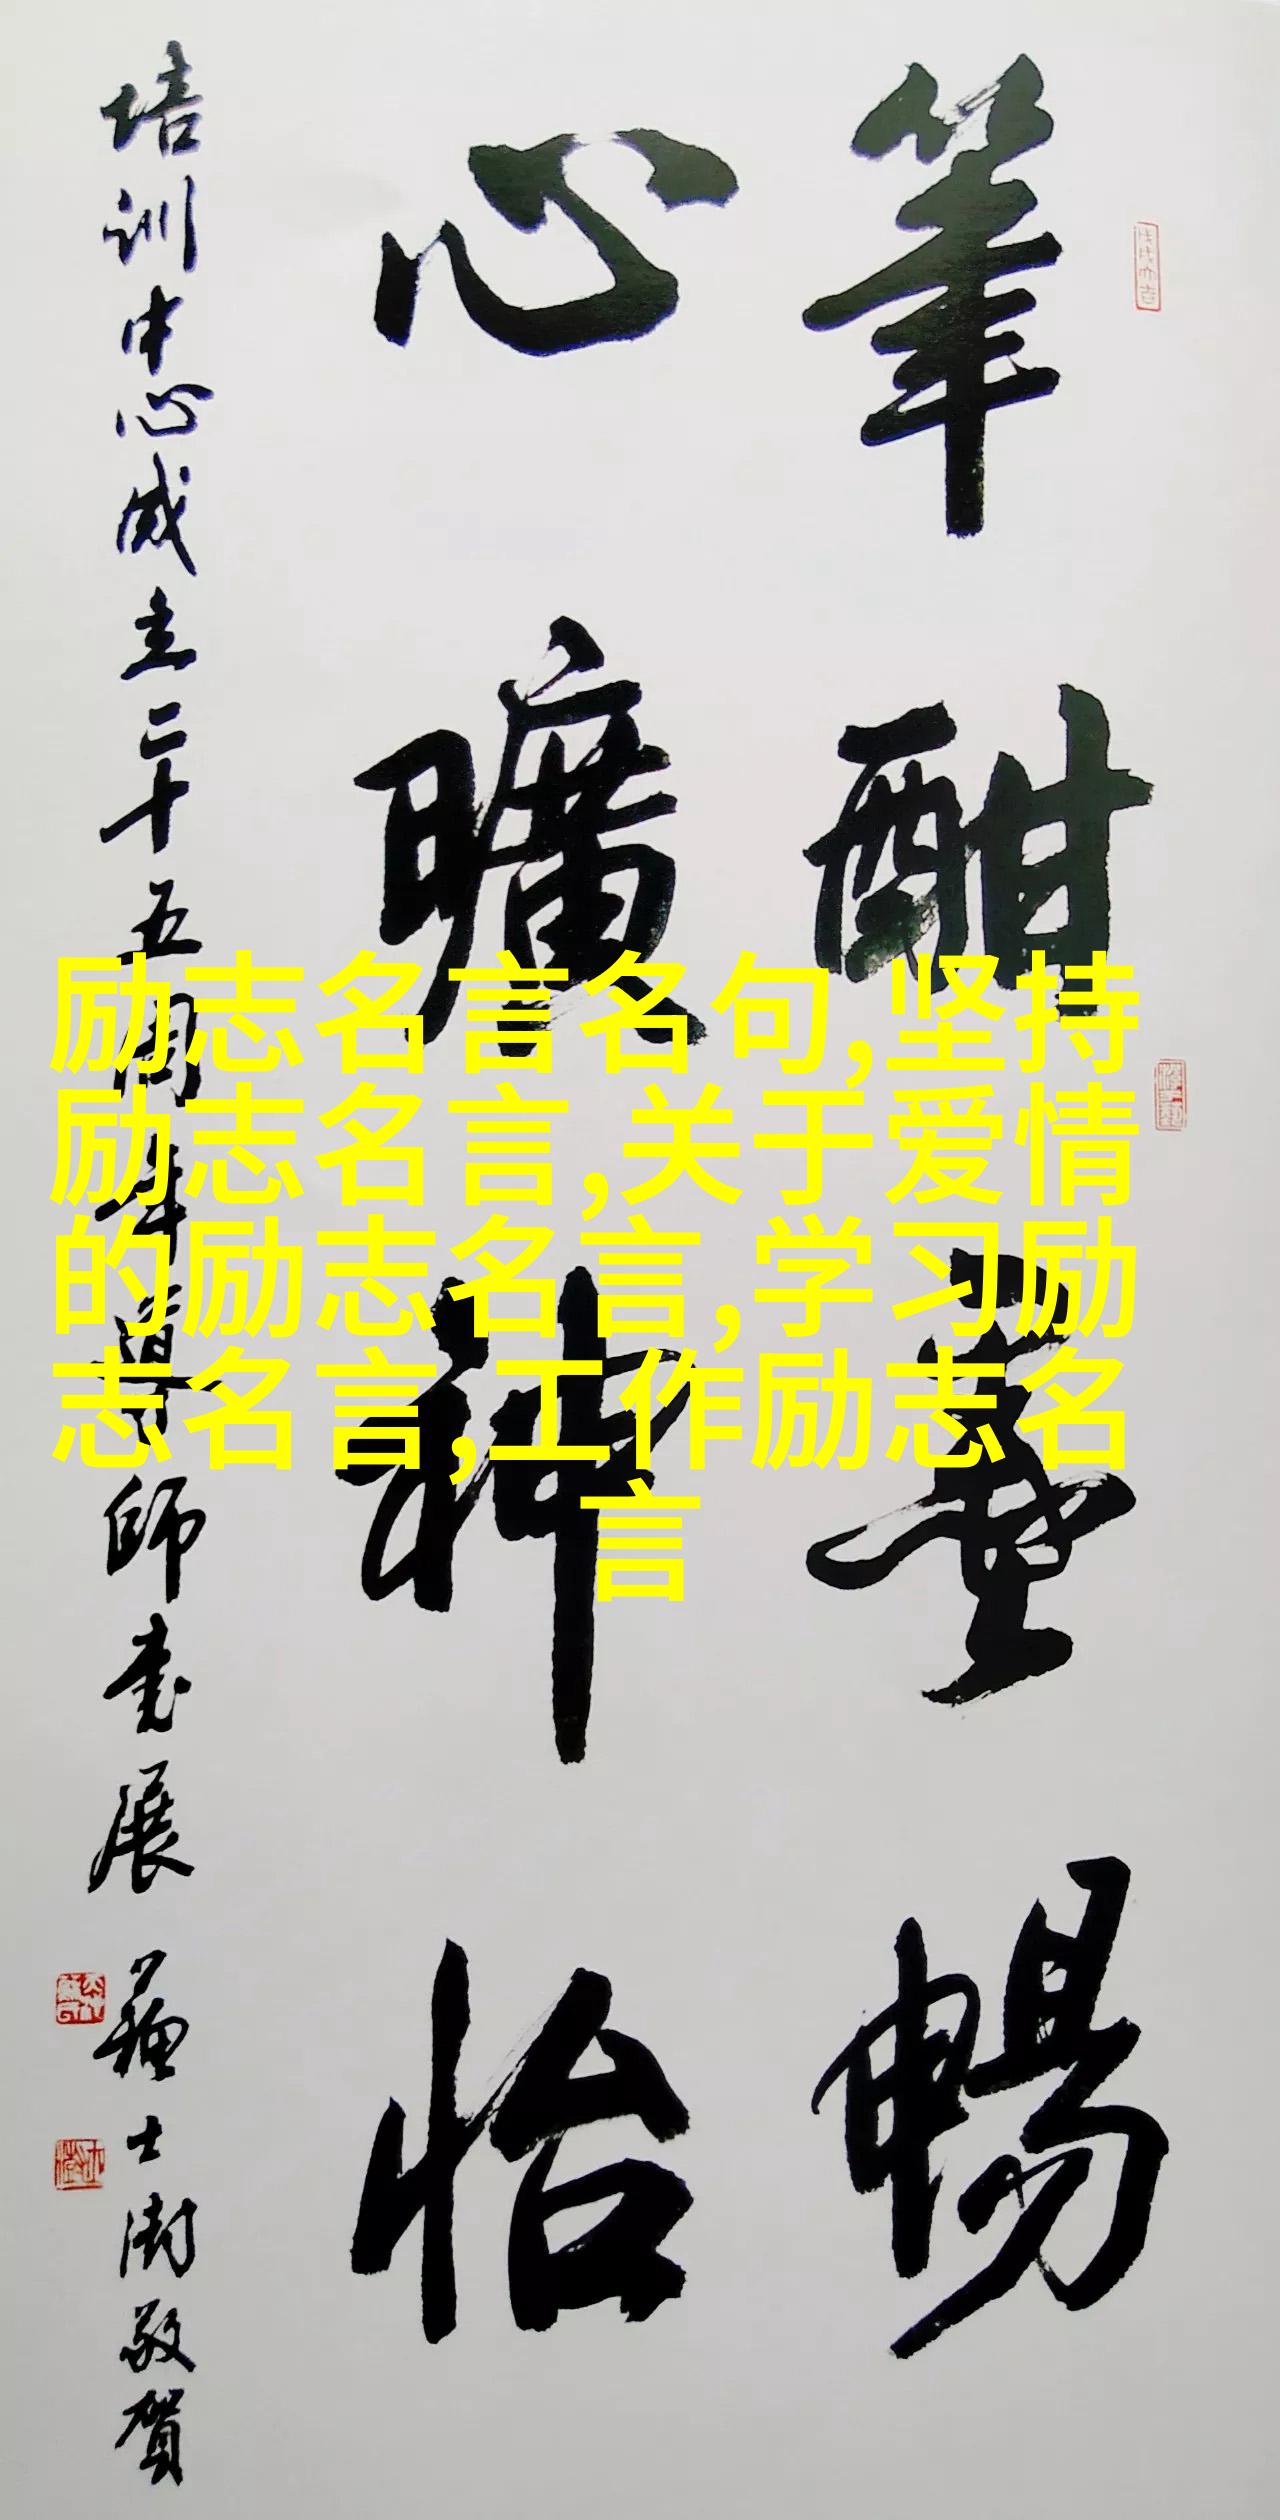 筆酣墨暢
心曠神怡
培訓中心成立二十五周年導師書展 蘇士澍敬賀
励志名言名句,坚持
励志名言,关于爱情
的励志名言,学习励
志名言,工作励志名
言